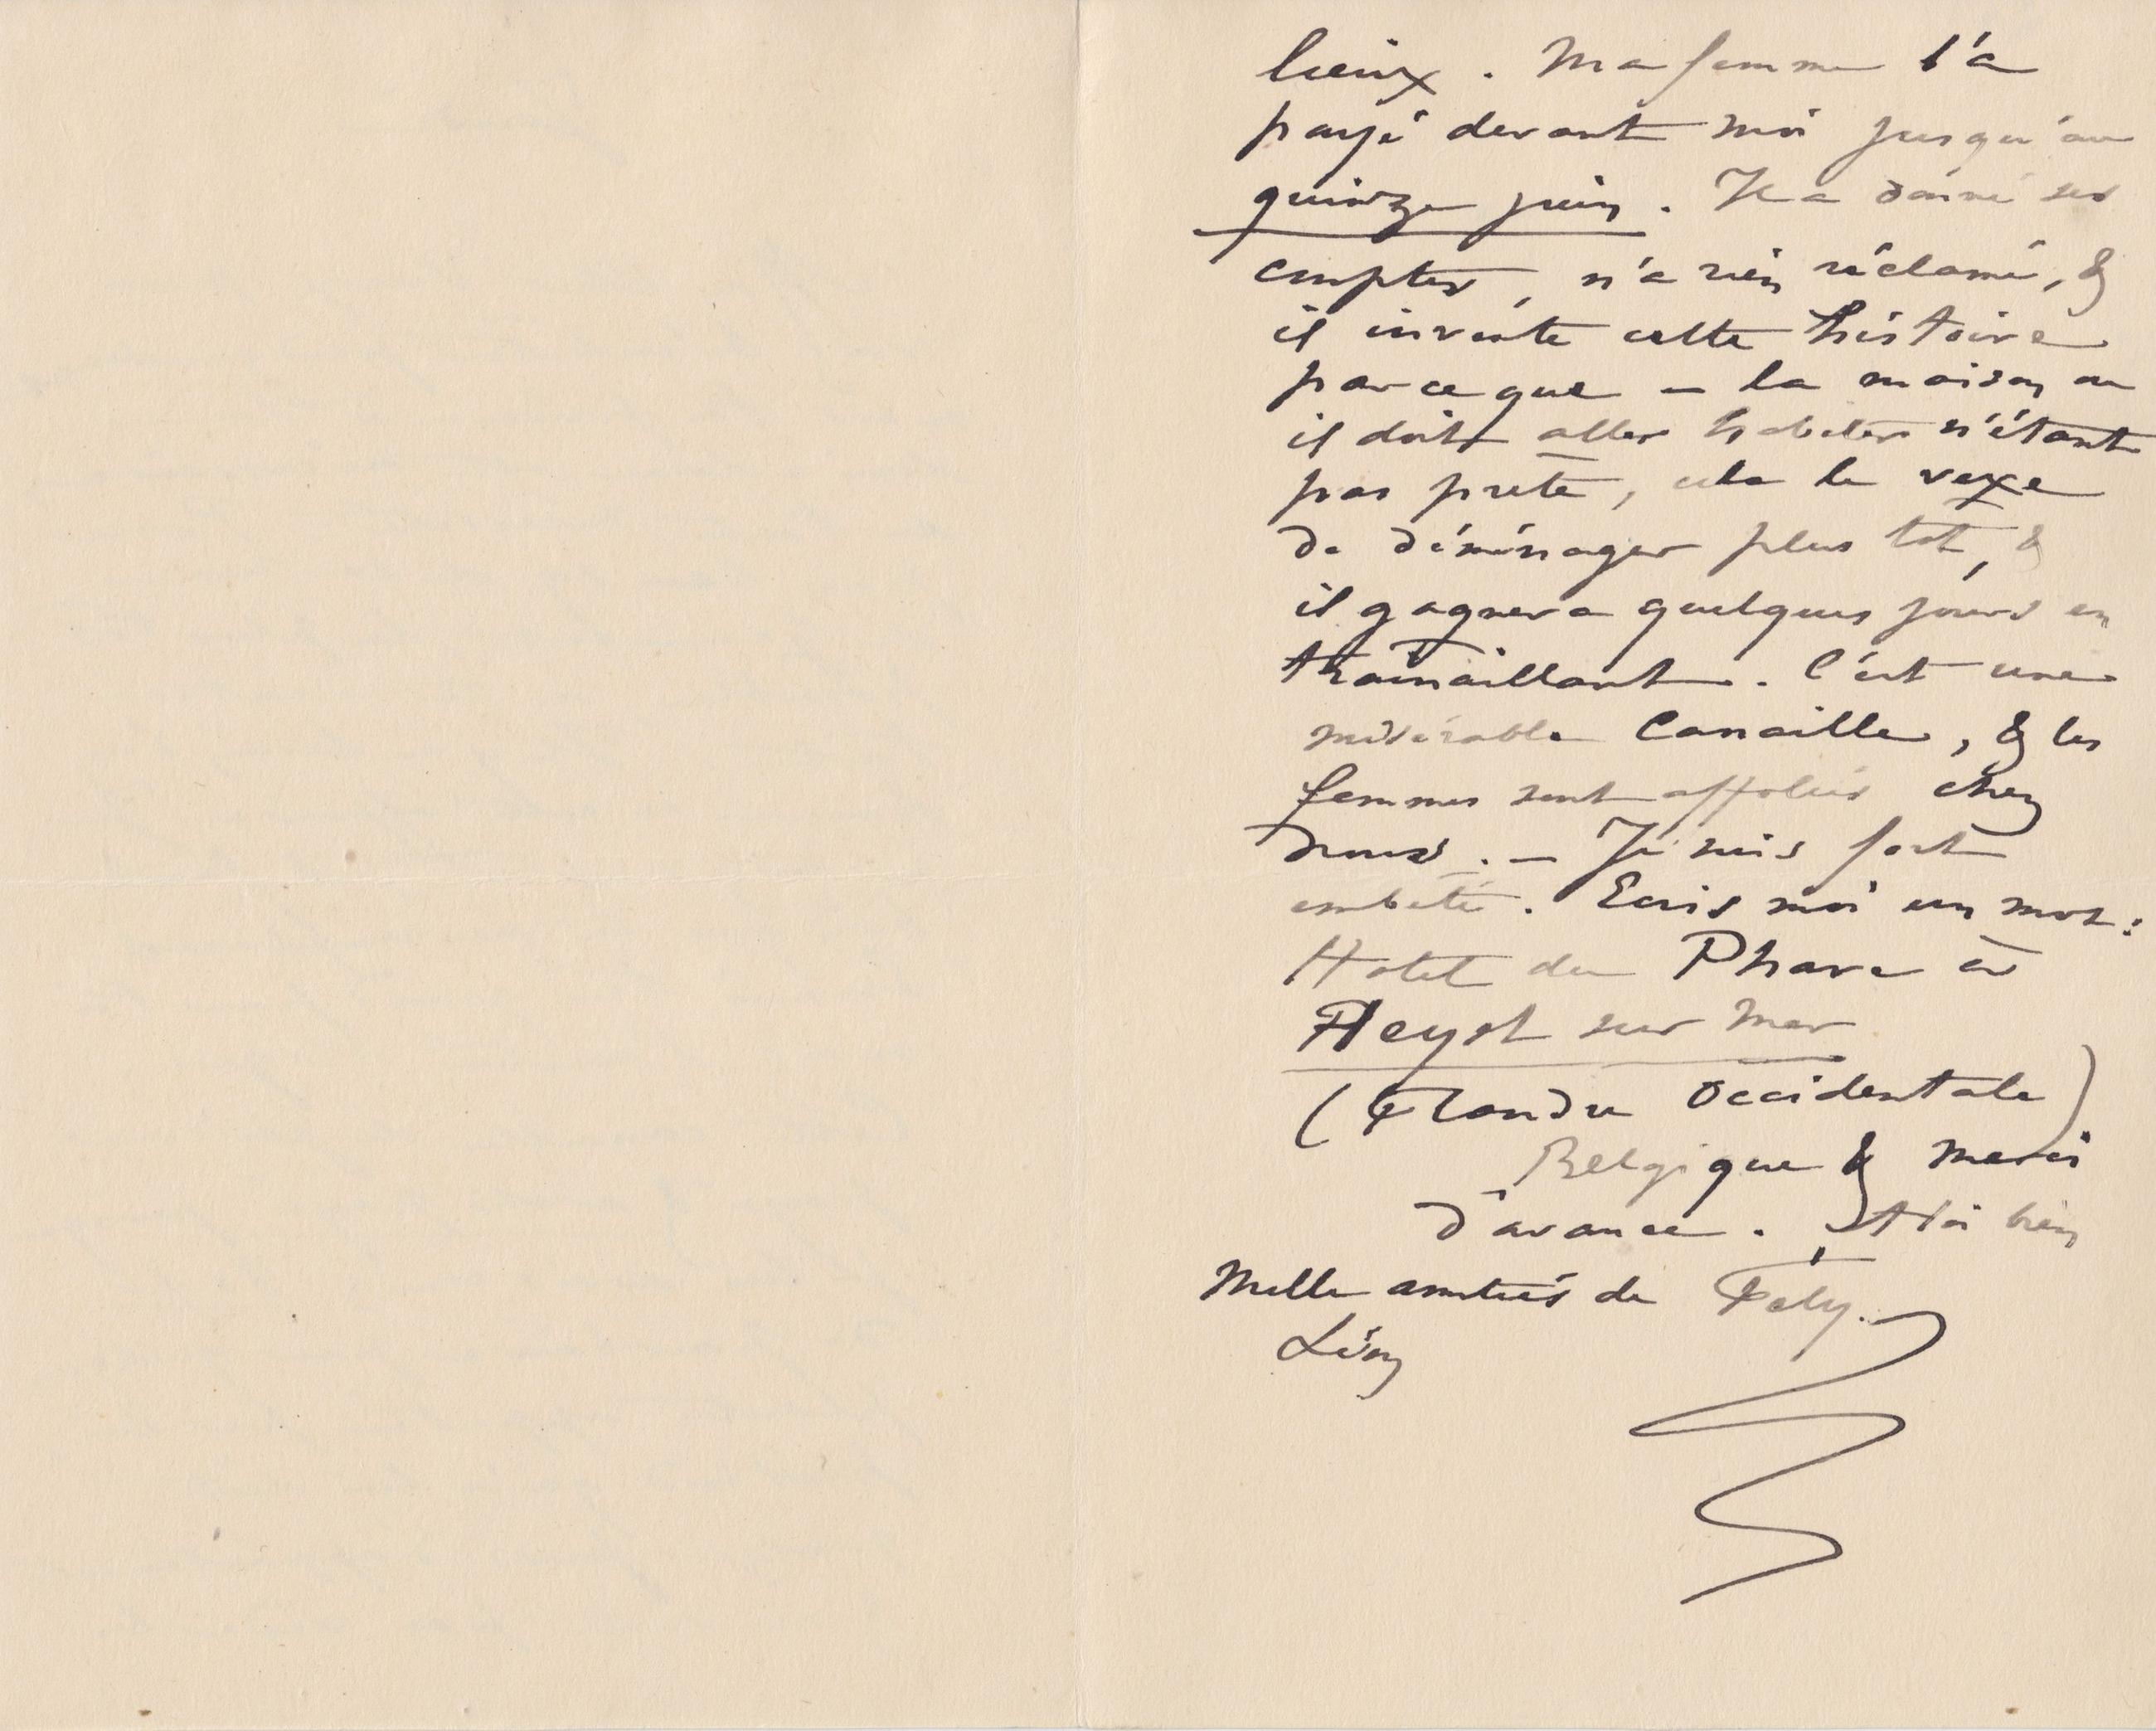 lieux. Ma femme l'a
payé devant moi jusqu'au
quinze juin. Il a donné ses
comptes, n'a rien réclamé, &
il invente cette histoire
parce que – la maison ou
il doit aller habiter n'étant
pas prête, cela le vexe
de déménager plus tot, &
il gagnera quelques jours en
trainaillant. C'est une
misérable Canaille, & les
femmes sont affolées chez
nous. – Je suis fort
embêté. Ecris moi un mot :
Hotel du Phare à
Heyst sur mer
(Flandre Occidentale)
Belgique & merci
d'avance. A toi bien
Mille amitiés de Fély.
Léon